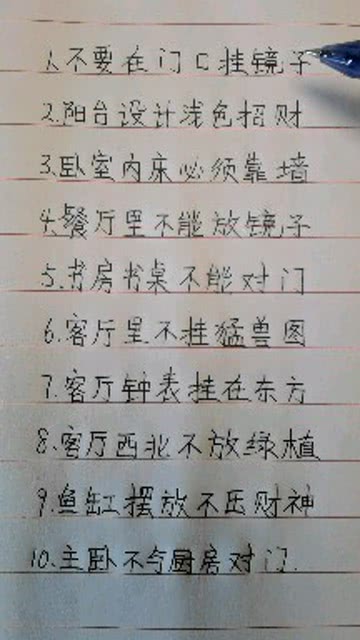 1.不要在门口挂镜子
2.阳台设计浅色招财
3.卧室内床必须靠墙
4.餐厅里不能放镜子
5.书房书桌不能对门
6.客厅里不挂猛兽图
7.客厅钟表挂在东方
8.客厅西北不放绿植
9.鱼缸摆放不压财神
10.主卧不与厨房对门.